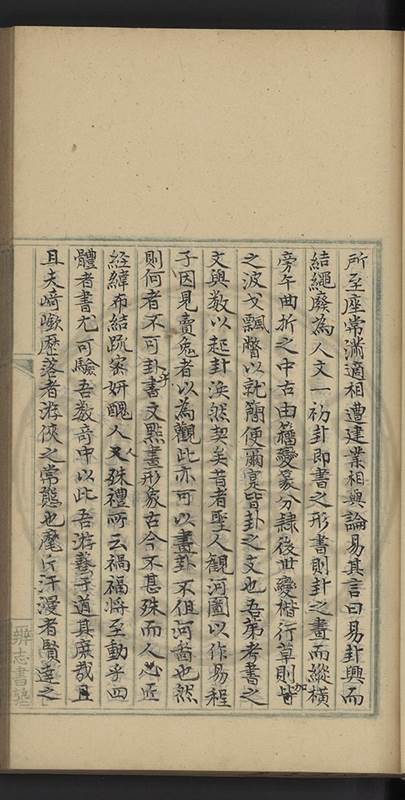 所至座常滿適相遭建業相與論易其言曰易卦興而
結繩廢為人文一初卦即書之形書則卦之畫而縱橫
旁午曲折之中古由籀變篆分隸後世變楷行草則皆
之波戈飄瞥以就簡便爾寔皆卦之文也吾第考書之
文與數以起卦渙然契矣昔者聖人觀河圖以作易程
子因見賣兔者以為觀此亦可以畫卦不但河圖也然
則何者不可卦乎書文點畫形象古今不甚殊而人心匠
經緯布結疏密妍醜人人殊禮所云禍福將至動乎四
體者書尤可驗吾數奇中以此吾游藝于道其庶哉且
且夫崎嶔歷落者游俠之常態也麾斥汗漫者賢達之
辨志書塾